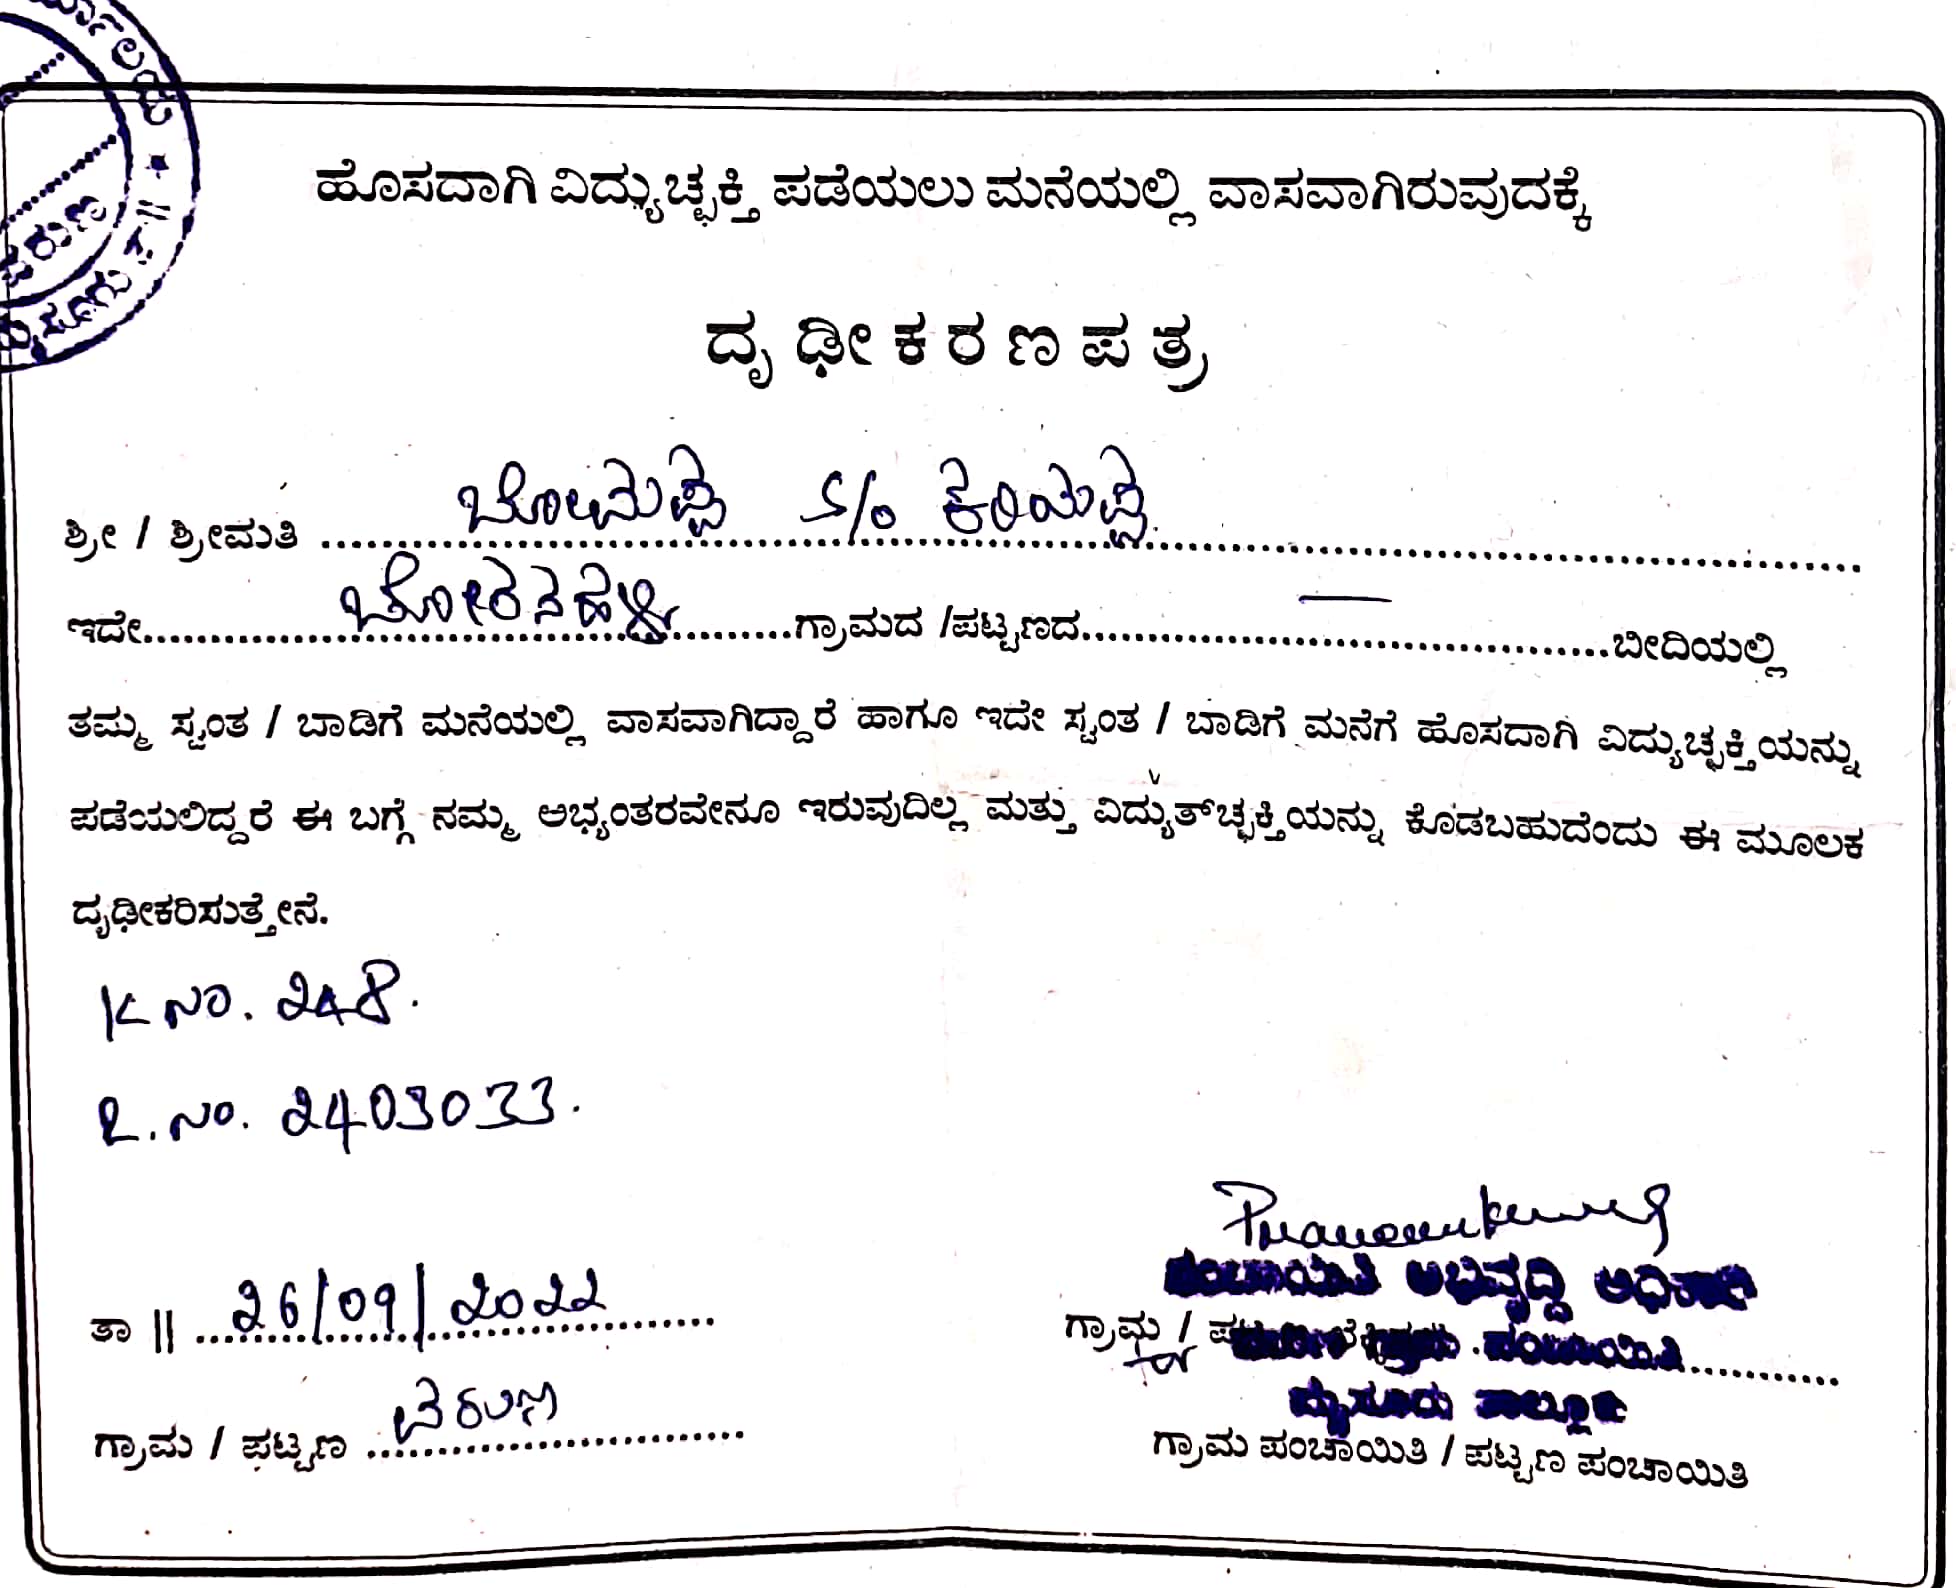 ಹೊಸದಾಗಿ ವಿದ್ಯುಚ್ಛಕ್ತಿ ಪಡೆಯಲು ಮನೆಯಲ್ಲಿ ವಾಸವಾಗಿರುವುದಕ್ಕೆ
ದೃಢೀಕರಣಪತ್ರ
ಶ್ರೀ / ಶ್ರೀಮತಿ ಬೋಮಪ್ಪ S/o ಕರಿಯಪ್ಪ
ಇದೇ ಚೋರನಹಳ್ಳಿ ಗ್ರಾಮದ /ಪಟ್ಟಣದ — ಬೀದಿಯಲ್ಲಿ
ತಮ್ಮ ಸ್ವಂತ / ಬಾಡಿಗೆ ಮನೆಯಲ್ಲಿ ವಾಸವಾಗಿದ್ದಾರೆ ಹಾಗೂ ಇದೇ ಸ್ವಂತ / ಬಾಡಿಗೆ ಮನೆಗೆ ಹೊಸದಾಗಿ ವಿದ್ಯುಚ್ಛಕ್ತಿಯನ್ನು
ಪಡೆಯಲಿದ್ದರೆ ಈ ಬಗ್ಗೆ ನಮ್ಮ ಅಭ್ಯಂತರವೇನೂ ಇರುವುದಿಲ್ಲ ಮತ್ತು ವಿದ್ಯುತ್‌ಚ್ಛಕ್ತಿಯನ್ನು ಕೊಡಬಹುದೆಂದು ಈ ಮೂಲಕ
ದೃಢೀಕರಿಸುತ್ತೇನೆ.
K NO. 248.
R. NO. 2403033.
ಪಂಚಾಯಿತಿ ಅಭಿವೃದ್ಧಿ ಅಧಿಕಾರಿ
ತಾ || 26/09/2022
ಗ್ರಾಮ / ಪಂಚಾಯಿತಿ
ಮೈಸೂರು ತಾಲ್ಲೂಕು
ಗ್ರಾಮ / ಪಟ್ಟಣ ವರುಣ
ಗ್ರಾಮ ಪಂಚಾಯಿತಿ / ಪಟ್ಟಣ ಪಂಚಾಯಿತಿ